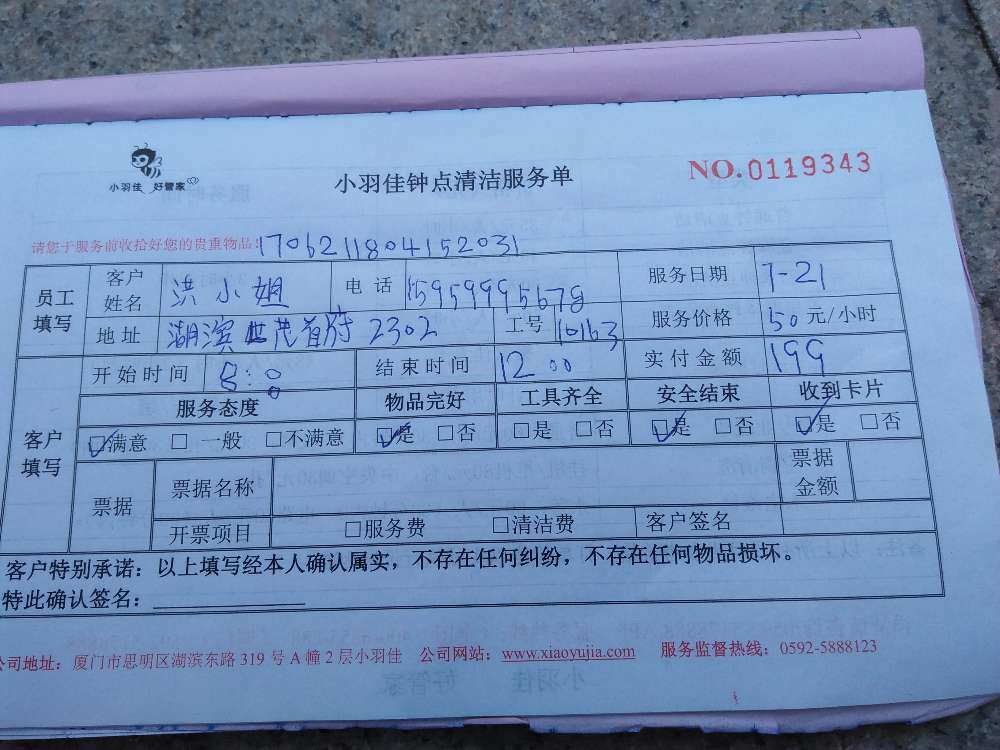 小羽佳 好管家
小羽佳钟点清洁服务单
NO.0119343
请您于服务前收拾好您的贵重物品: 1706211804152031
员工填写 客户姓名 洪小姐 电话 15959995678 服务日期 7-21
地址 湖滨世茂首府 2302 工号 10163 服务价格 50 元/小时
客户填写 开始时间 8:00 结束时间 12 00 实付金额 199
服务态度 物品完好 工具齐全 安全结束 收到卡片
☑满意 □ 一般 □不满意 ☑是 □否 □是 □否 ☑是 □否 ☑是 □否
票据 票据名称 票据金额
开票项目 □服务费 □清洁费 客户签名
客户特别承诺：以上填写经本人确认属实，不存在任何纠纷，不存在任何物品损坏。
特此确认签名：
公司地址：厦门市思明区湖滨东路 319 号 A 幢 2 层小羽佳 公司网站：www.xiaoyujia.com 服务监督热线：0592-5888123